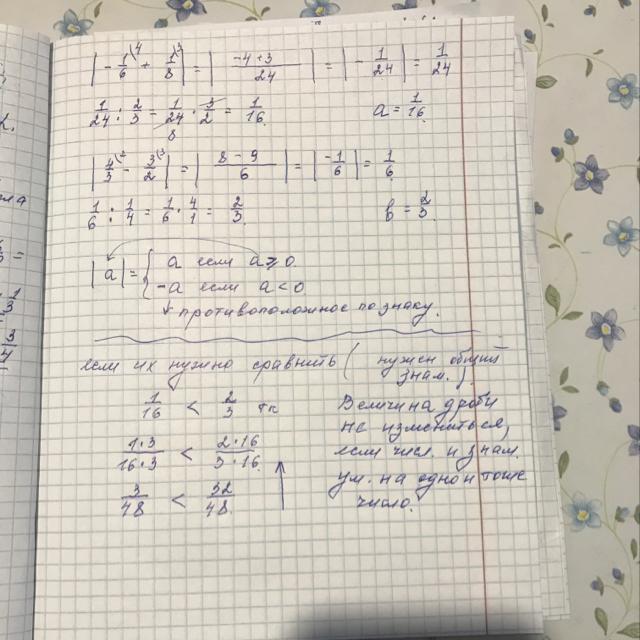 |-1/6\4 + 1/8\3| = |(-4+3)/24| = |-1/24| = 1/24
1/24 : 2/3 = 1/24 · 3/2 = 1/16    a = 1/16
8
|4/3\2 - 3/2\3| = |(8-9)/6| = |-1/6| = 1/6
1/6 : 1/4 = 1/6 · 4/1 = 2/3    b = 2/3
|a| = { a если a ≥ 0
-a если a < 0
↓ противоположное по знаку.
если их нужно сравнить ( нужен общий
знам. )
1/16 < 2/3 тк
(1·3)/(16·3) < (2·16)/(3·16)
3/48 < 32/48
Величина дроби
не измениться,
если числ. и знам.
ум. на одно и тоже
число.